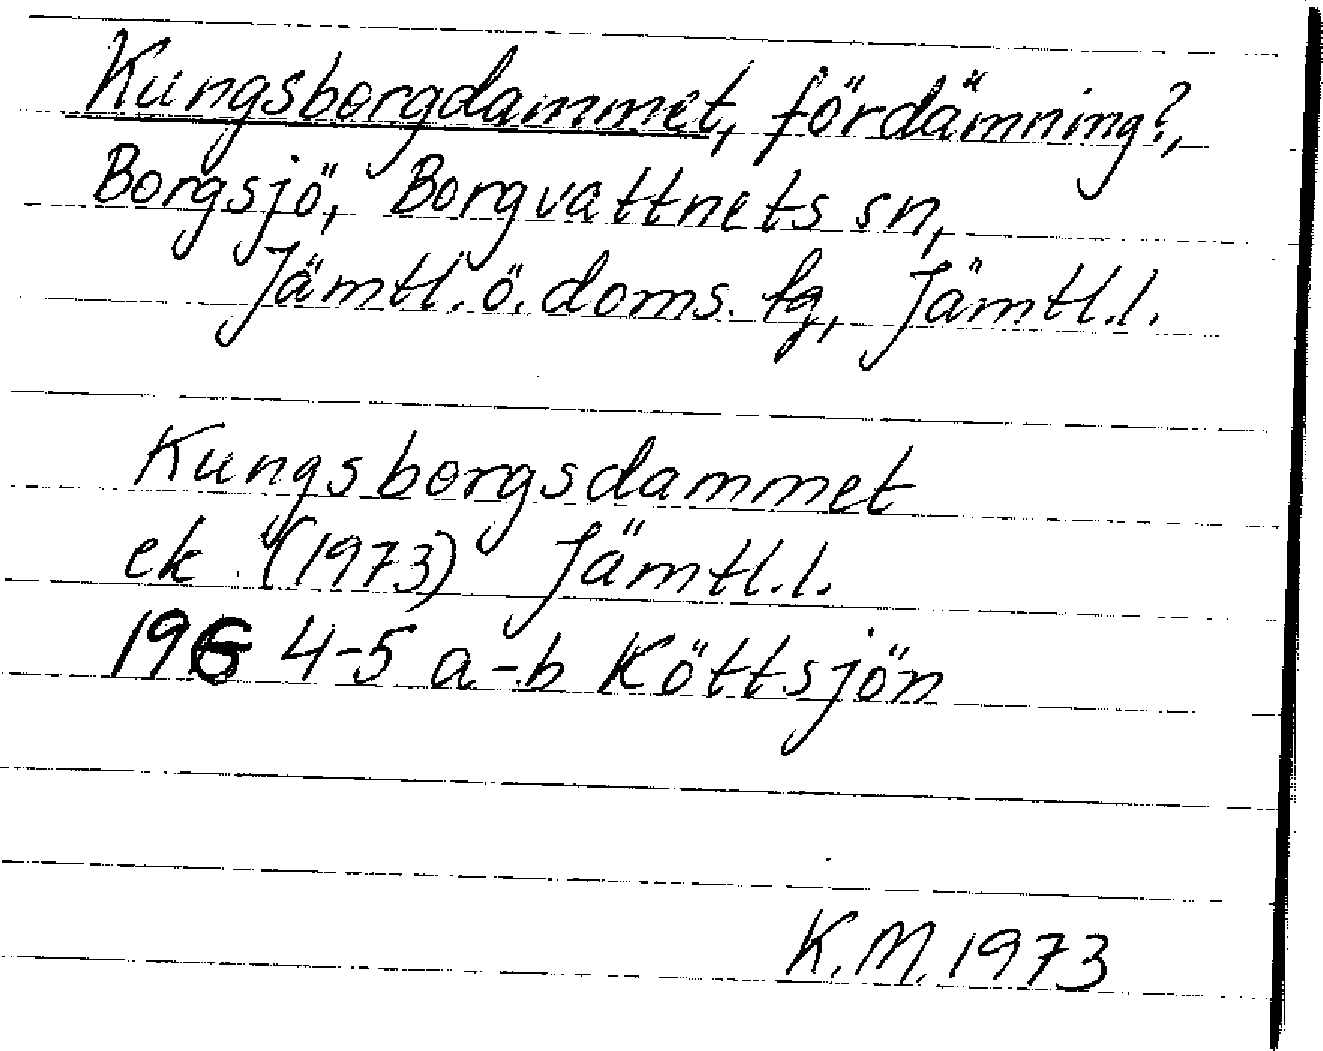 Kungsborgdammet, fördämning?,
Borgsjö, Borgvattnets sn,
Jämtl. ö. doms. tg, Jämtl. l.
Kungsborgsdammet
ek (1973) Jämtl. l.
19G 4-5 a-b Köttsjön
K.M. 1973